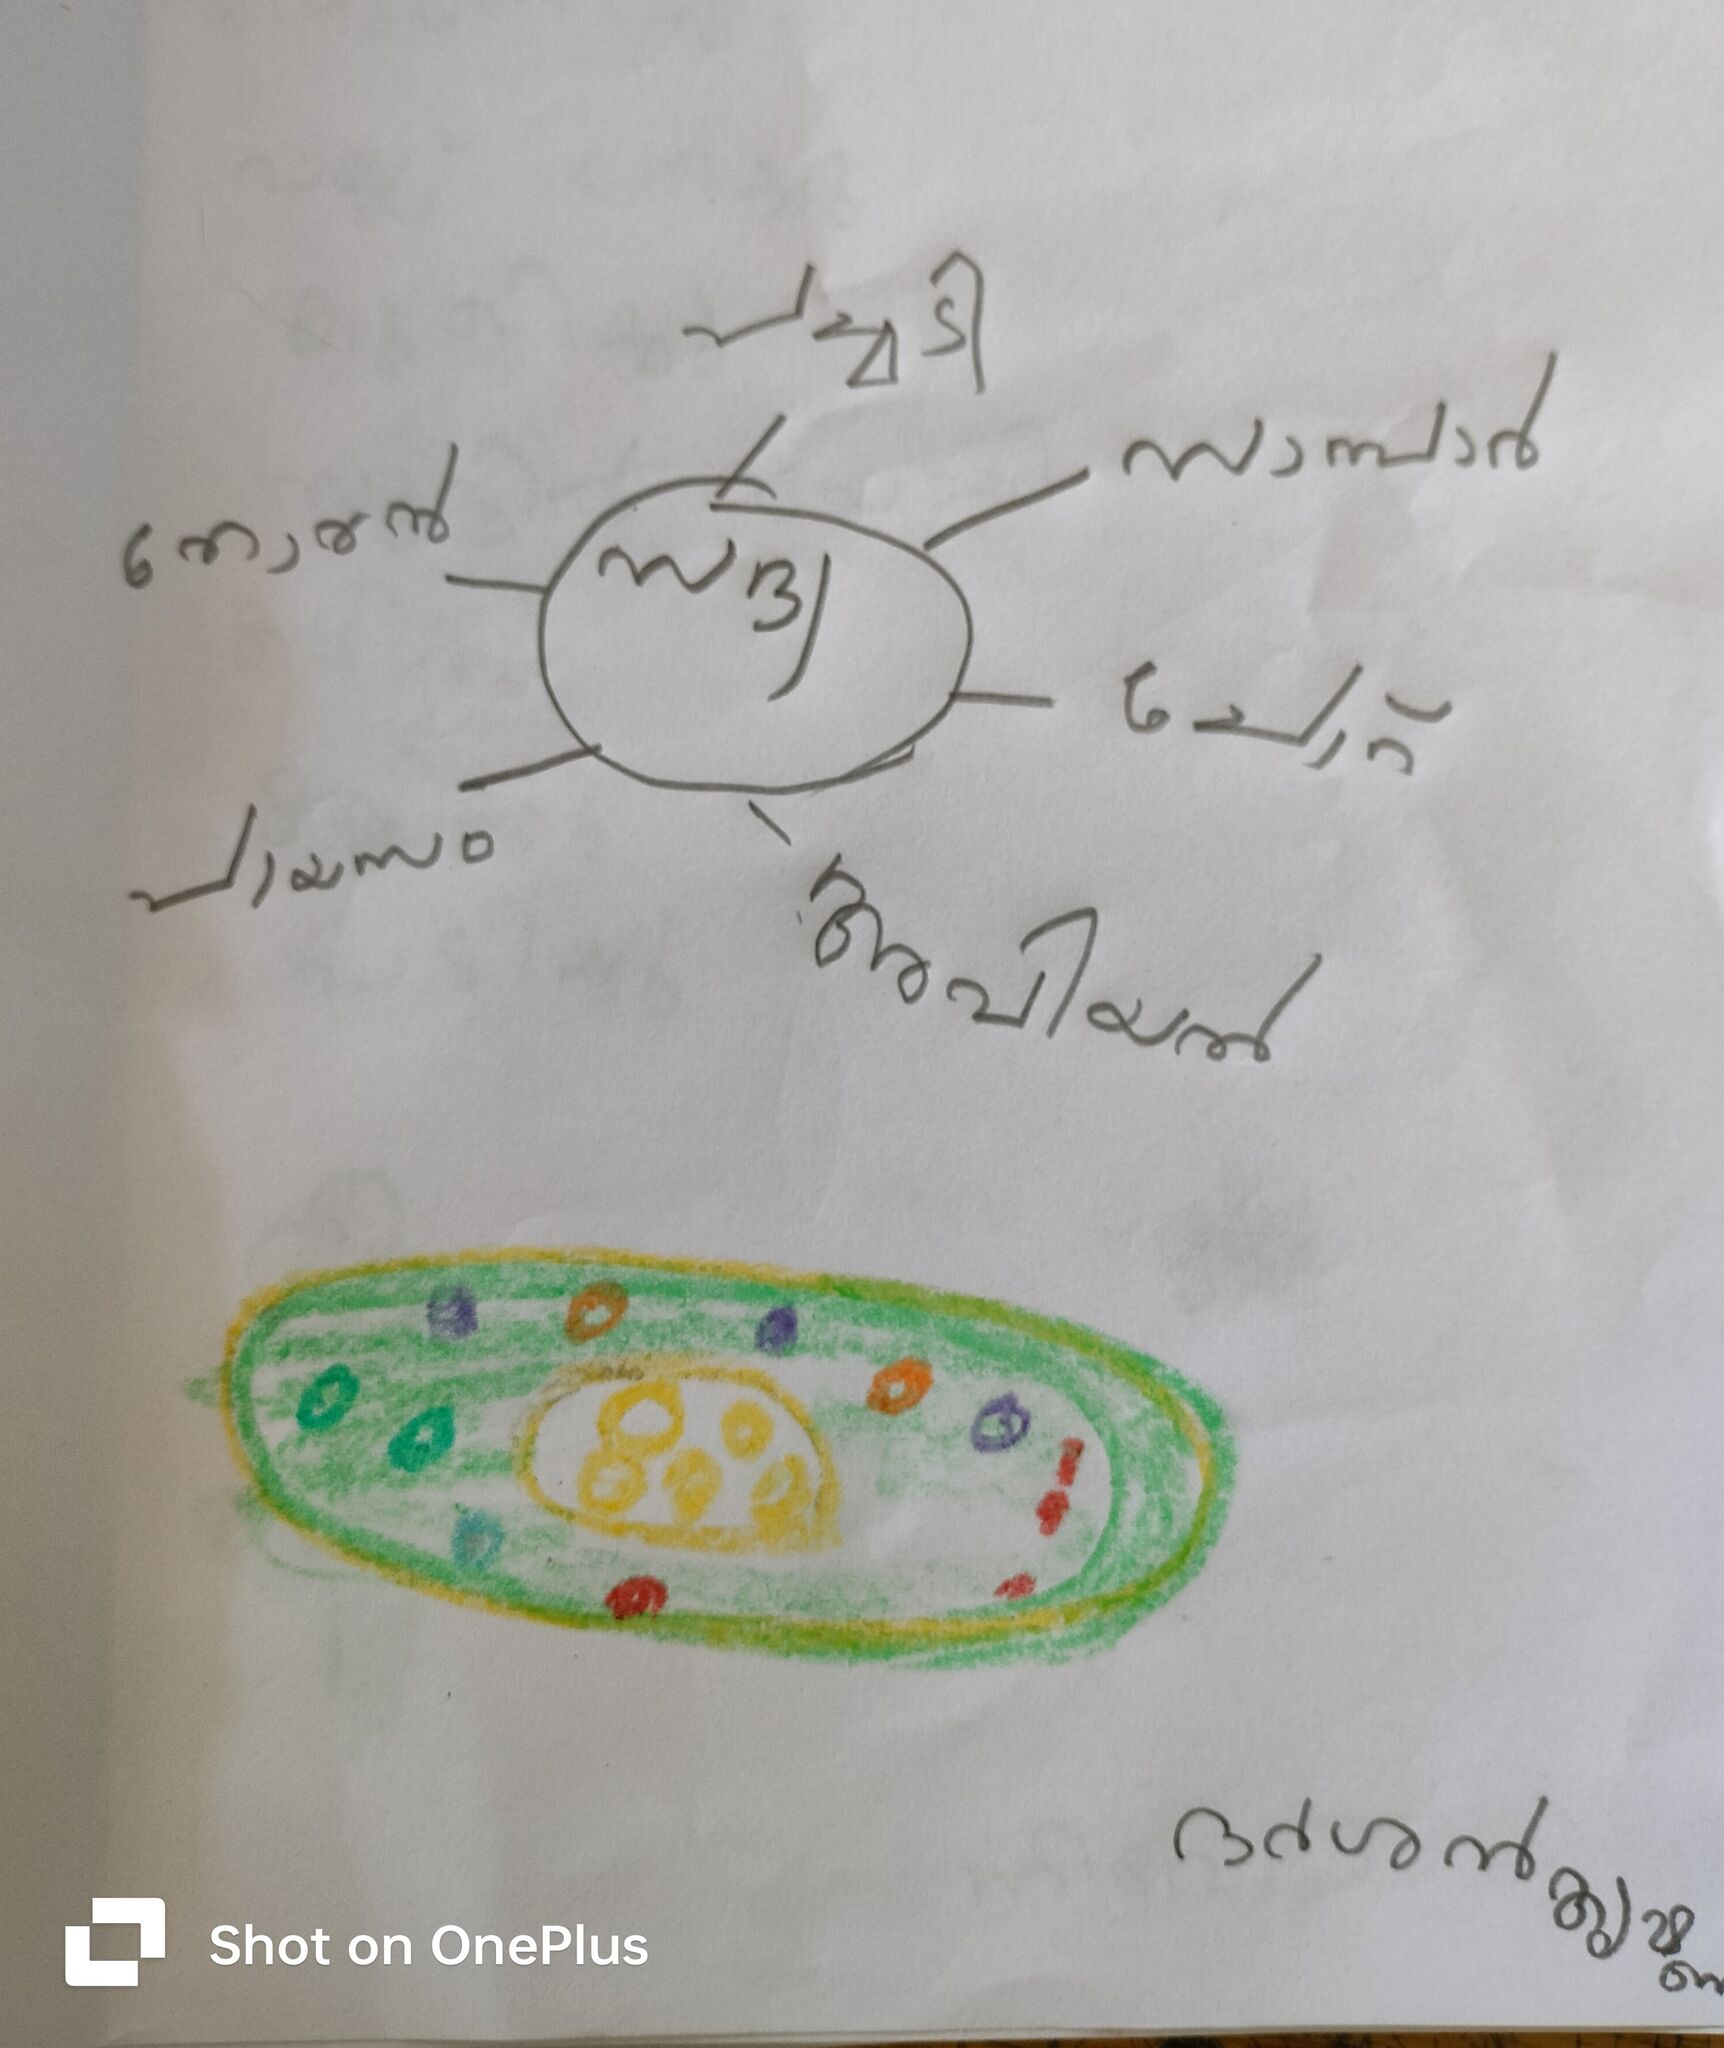 പച്ചടി
സാമ്പാർ
തോരൻ
സദ്യ
ചോറ്
പായസം
അവിയൽ
ദർശൻ
കൃഷ്ണ
Shot on OnePlus